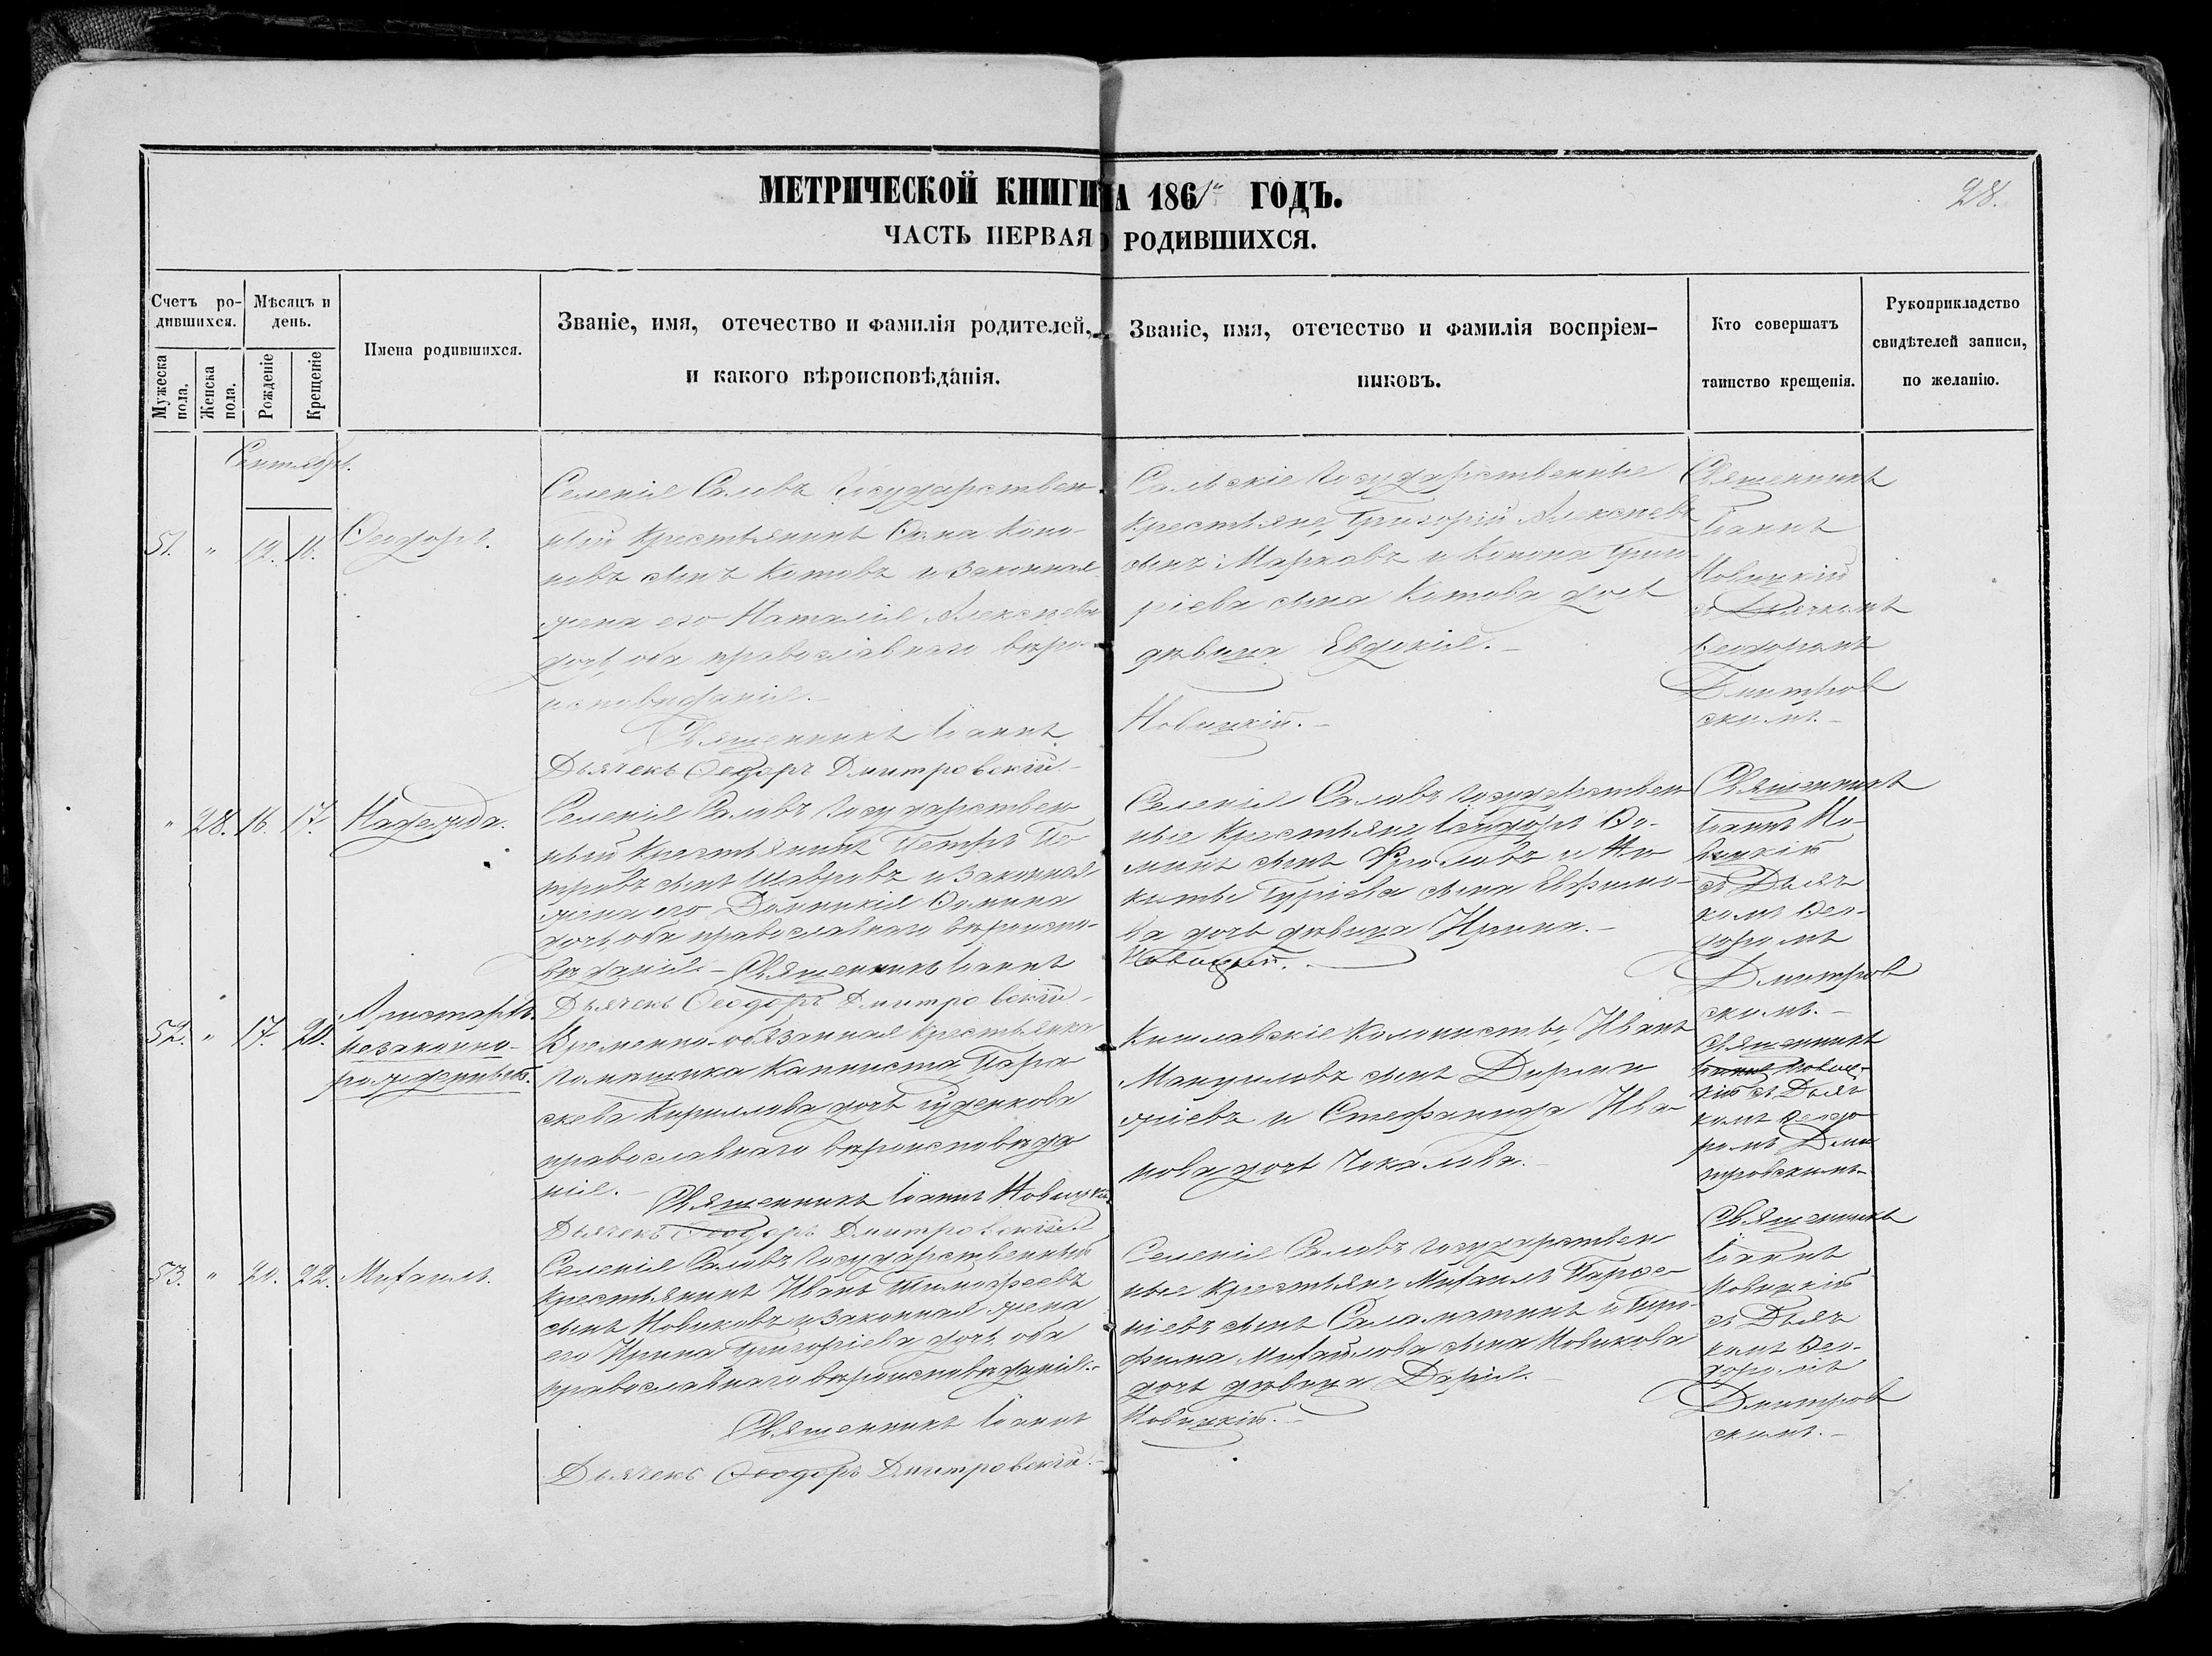 МЕТРИЧЕСКОЙ КНИГИ НА 1861й ГОДЪ.
28.
ЧАСТЬ ПЕРВАЯ О РОДИВШИХСЯ.
Счетъ ро-
дившихся.
Мужеска пола.
Женска пола.
Мѣсяцъ и
день.
Рожденіе
Крещеніе
Имена родившихся.
Званіе, имя, отечество и фамилія родителей,
и какого вѣроисповѣданія.
Званіе, имя, отечество и фамилія воспріем-
никовъ.
Кто совершатъ
таинство крещенія.
Рукоприкладство
свидѣтелей записи,
по желанію.
Сентябрь.
51. " 12.
Ѳеодоръ.
Селенія Саловъ Государствен-
ный крестьянинъ Ѳома Коно-
новъ сынъ Котовъ и законная
жена его Наталія Алексѣева
дочь, оба православнаго вѣро-
исповѣданія.
Священникъ Іоаннъ
Дьячекъ Ѳеодоръ Дмитровскій.
государственные
крестьяне, Григорій Алексѣевъ
сынъ Марковъ и Конона Григо-
ріева сына Котова дочь
дѣвица Евдокія.
Новицкій.
Священникъ
Іоаннъ
Новицкій
съ Дьячкомъ
Ѳеодоромъ
Дмитров
скимъ.
" 28. 16. 17.
Надежда.
Селенія Саловъ Государствен
ный крестьянинъ Петръ Пе
тровъ сынъ Шавровъ и законная
жена его Домникія Ѳомина
дочь, оба православнаго вѣроиспо-
вѣданія. Священникъ Іоаннъ
Дьячекъ Ѳеодоръ Дмитровскій.
Селенія Саловъ государствен
ные крестьяне Ісидоръ Ѳо-
минъ сынъ Фроловъ и Ни
киты Гуріева сына Ефимо-
ва дочь дѣвица Ирина.
Новицкій.
Священникъ
Іоаннъ Но-
вицкій
съ Дьяч
комъ Ѳео-
доромъ
Дмитров
скимъ.
52. " 17. 20.
Аристархъ.
незаконно-
рожденный.
Временно-обязанная крестьянка
помѣщика Капниста Пара
скева Кириллова дочь
православнаго вѣроисповѣда
нія.
Священникъ Іоаннъ Новицкій
Дьячекъ Ѳеодоръ Дмитровскій.
Кишлавскіе колонисты, Иванъ
Мануиловъ сынъ Дерми
жіевъ и Стефанида Ива
нова дочь Чокалова.
Священникъ
Іоаннъ Новиц-
кій съ Дьяч
комъ Ѳеодо
ромъ Дми
тровскимъ.
53. " 20. 22.
Михаилъ.
Селенія Саловъ Государственный
крестьянинъ Иванъ Тимофеевъ
сынъ Новиковъ и законная жена
его Ирина Григоріева дочь, оба
православнаго вѣроисповѣданія.
Священникъ Іоаннъ
Дьячекъ Ѳеодоръ Дмитровскій.
Селенія Саловъ государствен
ные крестьяне Михаилъ Парѳе-
ніевъ сынъ Саламатинъ и Тро-
фима Михайлова сына Новикова
дочь дѣвица Дарія.
Новицкій.
Священникъ
Іоаннъ
Новицкій
съ Дьяч
комъ Ѳео-
доромъ
Дмитров
скимъ.